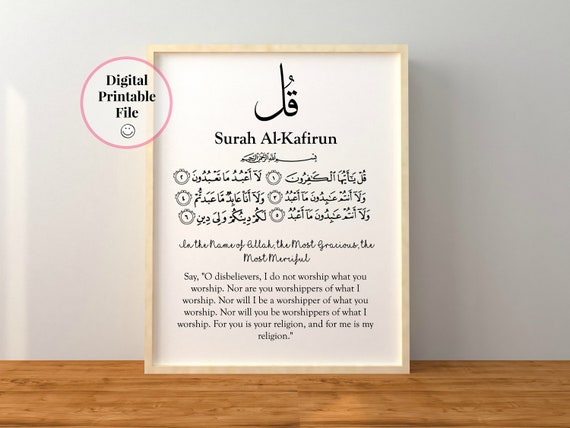 Digital
Printable
File
قُل
Surah Al-Kafirun
بِسْمِ اللهِ الرَّحْمٰنِ الرَّحِيْمِ
قُلْ يَٰٓأَيُّهَا ٱلْكَٰفِرُونَ ١ لَآ أَعْبُدُ مَا تَعْبُدُونَ ٢
وَلَآ أَنتُمْ عَٰبِدُونَ مَآ أَعْبُدُ ٣ وَلَآ أَنَا۠ عَابِدٌ مَّا عَبَدتُّمْ ٤
وَلَآ أَنتُمْ عَٰبِدُونَ مَآ أَعْبُدُ ٥ لَكُمْ دِينُكُمْ وَلِىَ دِينِ ٦
In the Name of Allah, the Most Gracious, the
Most Merciful
Say, "O disbelievers, I do not worship what you
worship. Nor are you worshippers of what I
worship. Nor will I be a worshipper of what you
worship. Nor will you be worshippers of what I
worship. For you is your religion, and for me is my
religion."